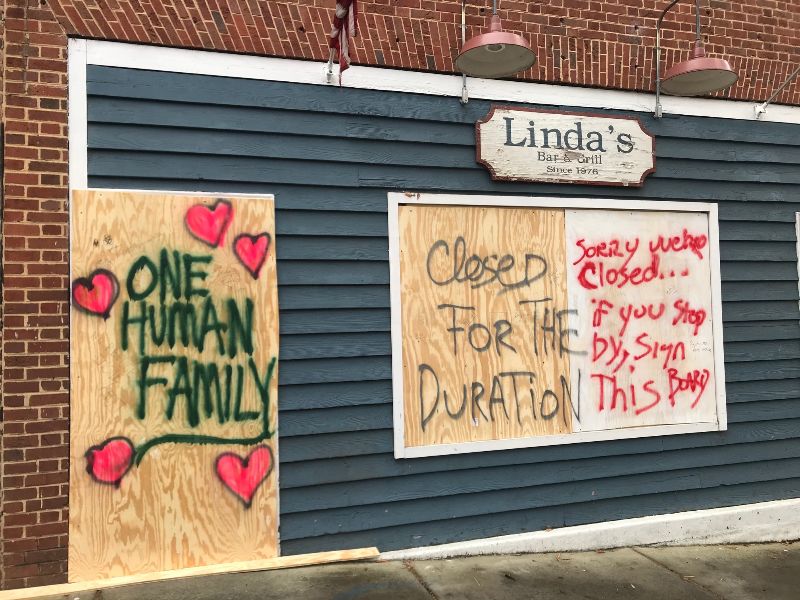 Linda's
Bar & Grill
Since 1976
ONE
HUMAN
FAMILY
Closed
FOR THE
DURATION
SORRY we're
Closed...
if you stop
by, sign
This BOARD